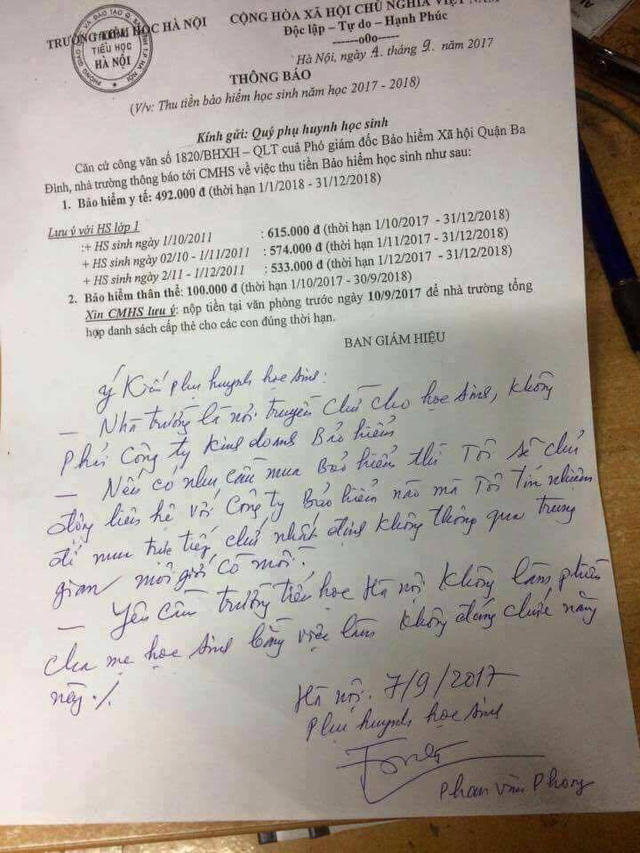 TRƯỜNG TIỂU HỌC HÀ NỘI
CỘNG HÒA XÃ HỘI CHỦ NGHĨA VIỆT NAM
Độc lập – Tự do – Hạnh Phúc
-------o0o-------
TIỂU HỌC
HÀ NỘI
Hà Nội, ngày 4 tháng 9 năm 2017
THÔNG BÁO
(V/v: Thu tiền bảo hiểm học sinh năm học 2017 - 2018)
Kính gửi: Quý phụ huynh học sinh
Căn cứ công văn số 1820/BHXH – QLT cuả Phó giám đốc Bảo hiểm Xã hội Quận Ba
Đình, nhà trường thông báo tới CMHS về việc thu tiền Bảo hiểm học sinh như sau:
1. Bảo hiểm y tế: 492.000 đ (thời hạn 1/1/2018 - 31/12/2018)
Lưu ý với HS lớp 1
:+ HS sinh ngày 1/10/2011 : 615.000 đ (thời hạn 1/10/2017 - 31/12/2018)
+ HS sinh ngày 02/10 - 1/11/2011 : 574.000 đ (thời hạn 1/11/2017 - 31/12/2018)
+ HS sinh ngày 2/11 - 1/12/2011 : 533.000 đ (thời hạn 1/12/2017 - 31/12/2018)
2. Bảo hiểm thân thể: 100.000 đ (thời hạn 1/10/2017 - 30/9/2018)
Xin CMHS lưu ý: nộp tiền tại văn phòng trước ngày 10/9/2017 để nhà trường tổng
hợp danh sách cấp thẻ cho các con đúng thời hạn.
BAN GIÁM HIỆU
Ý Kiến phụ huynh học sinh:
– Nhà trường là nơi truyền chữ cho học sinh, không
phải Công ty kinh doanh Bảo hiểm
– Nếu có nhu cầu mua Bảo hiểm thì Tôi sẽ chủ
động liên hệ với Công ty Bảo hiểm nào mà Tôi tín nhiệm
để mua trực tiếp, chứ nhất định không thông qua trung
gian môi giới cò mồi.
– Yêu cầu trường tiểu học Hà Nội không làm phiền
cha mẹ học sinh bằng việc làm không đúng chức năng
này ./.
Hà Nội. 7/9/2017
Phụ huynh học sinh
Phan Văn Phong